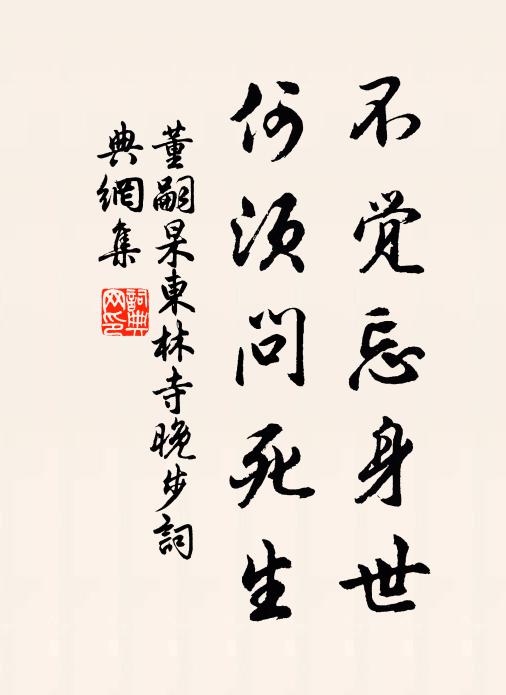 不觉忘身世
何须问死生
董嗣杲東林寺晚步詞
典網集
詞典
网印